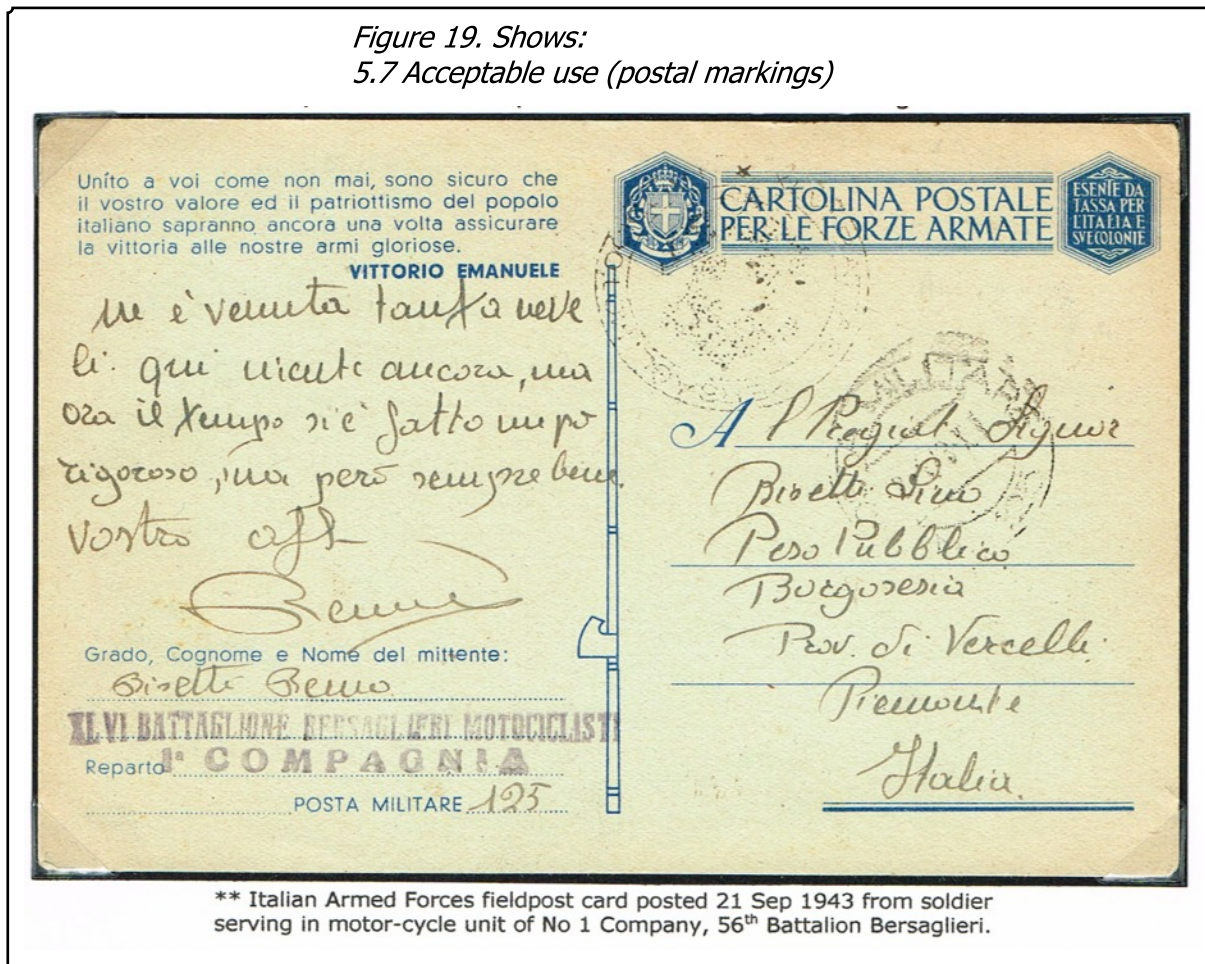 Figure 19. Shows:
5.7 Acceptable use (postal markings)
Uníto a voi come non mai, sono sicuro che
il vostro valore ed il patriottismo del popolo
italiano sapranno ancora una volta assicurare
la vittoria alle nostre armi gloriose.
VITTORIO EMANUELE
è venuta tanta neve
li. qui niente ancora, ma
ora il tempo si è fatto un po
rigoroso, ma però sempre bene
Vostro aff
Remo
Grado, Cognome e Nome del mittente:
Bisetti Remo
XLVI BATTAGLIONE BERSAGLIERI MOTOCICLISTI
Reparto 1ª COMPAGNIA
POSTA MILITARE 125
CARTOLINA POSTALE
PER LE FORZE ARMATE
ESENTE DA
TASSA PER
L'ITALIA E
SVE COLONIE
MILITARE
A l Pregiat Signor
Bisetti Lino
Peso Pubblico
Borgosesia
Prov. di Vercelli
Piemonte
Italia.
** Italian Armed Forces fieldpost card posted 21 Sep 1943 from soldier
serving in motor-cycle unit of No 1 Company, 56th Battalion Bersaglieri.